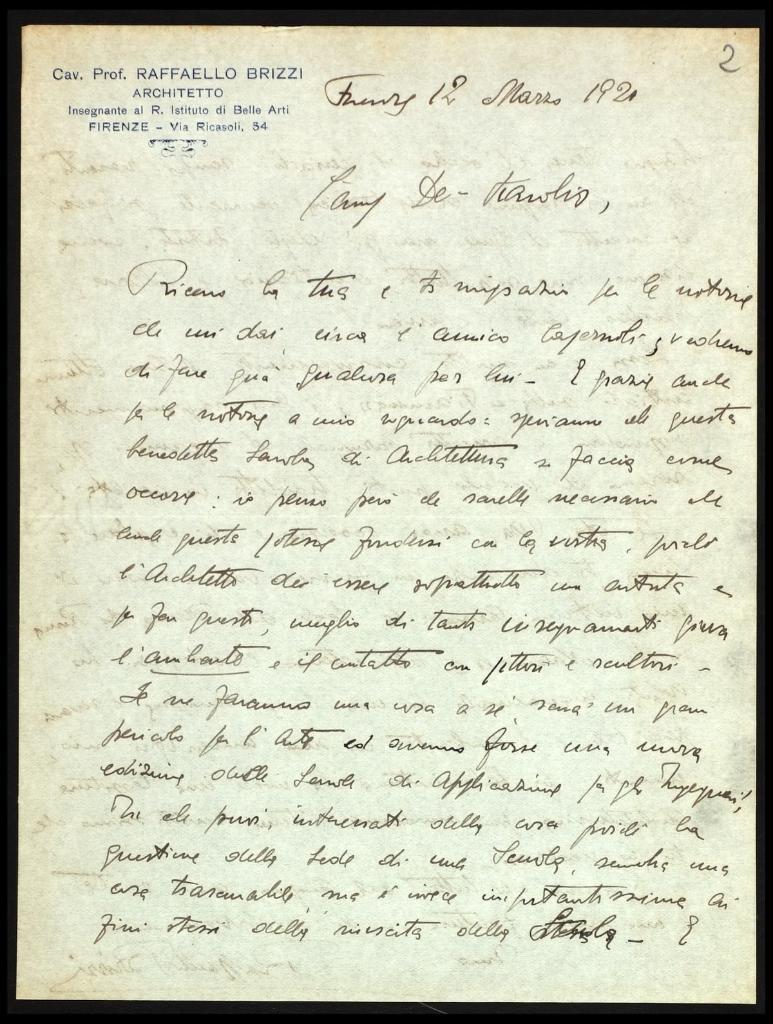 2
Cav. Prof. RAFFAELLO BRIZZI
ARCHITETTO
Insegnante al R. Istituto di Belle Arti
FIRENZE - Via Ricasoli, 54
Firenze 12 Marzo 1921
Caro De-Karolis,
Ricevo la tua e ti ringrazio per le notizie
che mi dai circa l'amico ; vedremo
di fare qualcosa per lui - E grazie anche
per le notizie a mio riguardo: speriamo che questa
benedetta Scuola di Architettura si faccia come
occorre: io penso però che sarebbe necessario che
anche questa potesse fondersi con la vostra, poichè
l'Architetto dev'essere soprattutto un artista e
per far questo, meglio di tanti insegnamenti giova
l'ambiente e il contatto con pittori e scultori -
Se ne faranno una cosa a sè sarà un gran
pericolo per l'Arte ed avremo forse una nuova
edizione delle Scuole di Applicazione per gli Ingegneri!
Tu che puoi, interessati della cosa poichè la
questione della Sede di una Scuola, sembra una
cosa trascurabile, ma è invece importantissima ai
fini stessi della riuscita della Scuola - E